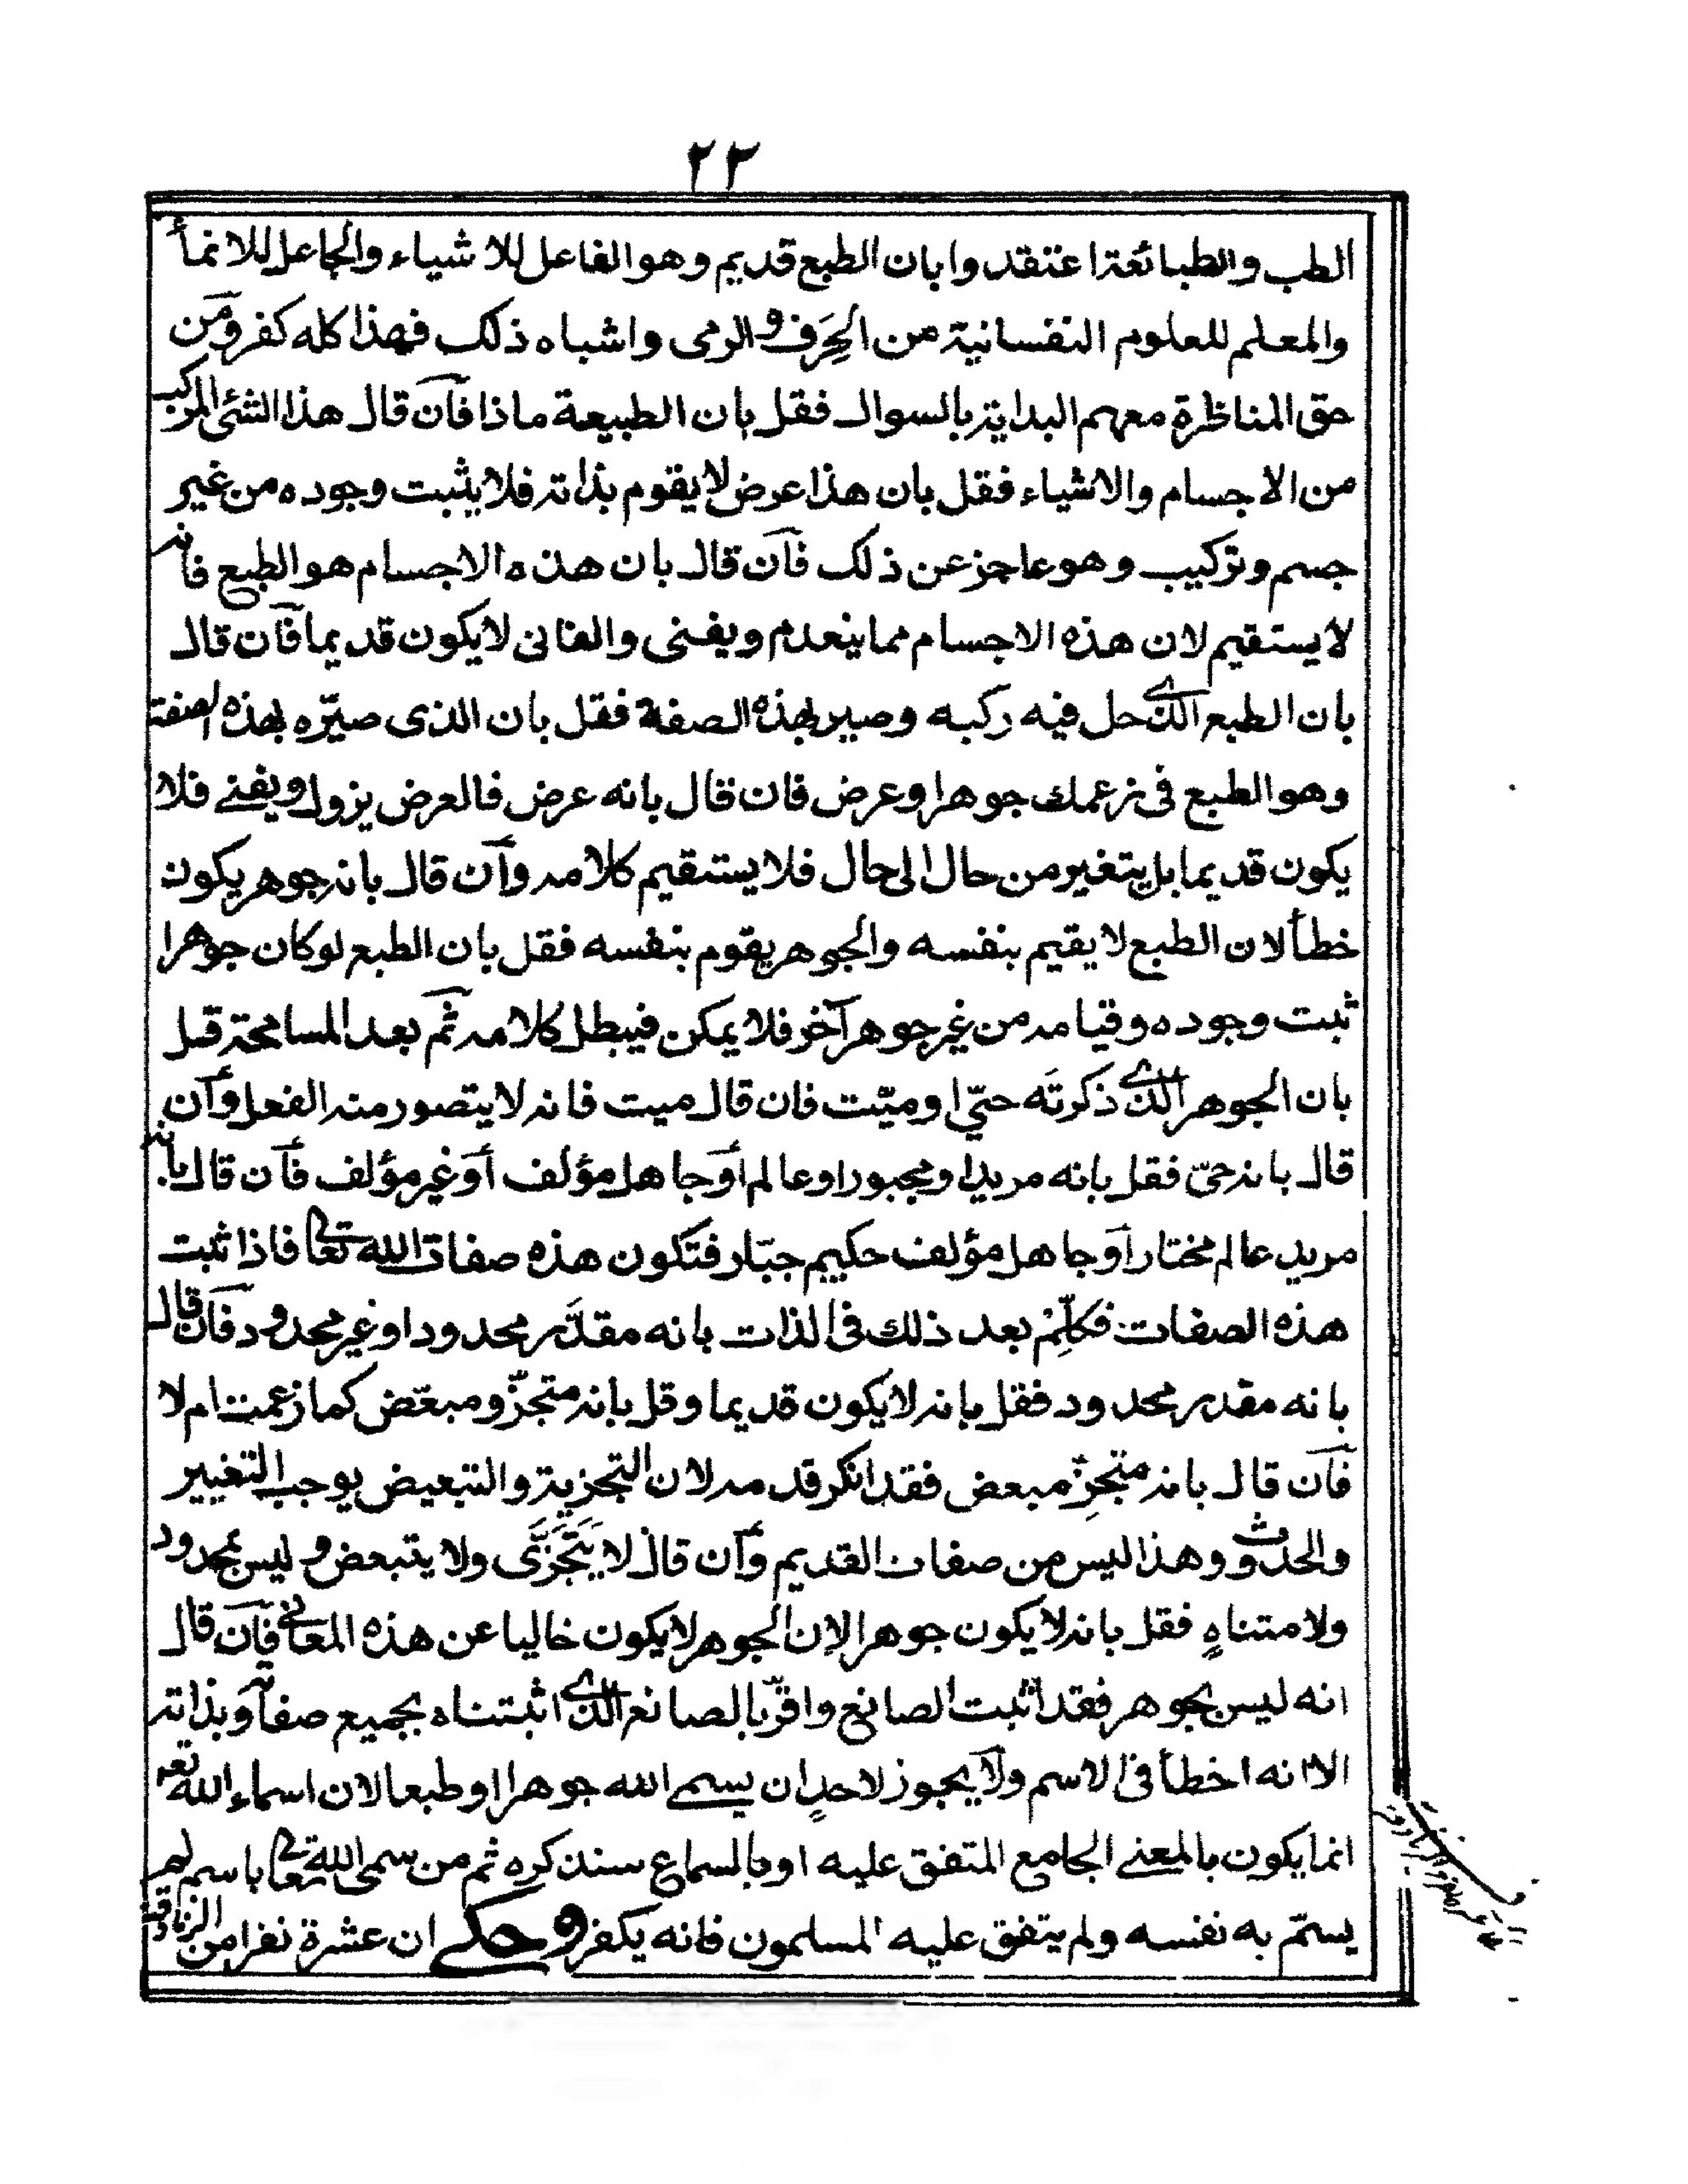 ٢٢
الطب والطبائعة اعتقدوا بان الطبع قديم وهو الفاعل للاشياء والجاعل للانمأ
والمعلم للعلوم النفسانية من الحِرَف والرمى واشباه ذلك فهذا كله كفر ومن
حق المناظرة معهم البداية بالسوال فقل بان الطبيعة ماذا فان قال هذا الشئ المركب
من الاجسام والاشياء فقل بان هذا عرض لا يقوم بذاته فلا يثبت وجوده من غير
جسم وتركيب وهو عاجز عن ذلك فان قال بان هذه الاجسام هو الطبع فانه
لا يستقيم لان هذه الاجسام مما ينعدم ويفنى والفانى لا يكون قديما فان قال
بان الطبع الذى حل فيه ركبه وصيره بهذه الصفة فقل بان الذى صيّره بهذه الصفة
وهو الطبع فى زعمك جوهر او عرض فان قال بانه عرض فالعرض يزول ويفنى فلا
يكون قديما بل يتغير من حال الى حال فلا يستقيم كلامه وان قال بانه جوهر يكون
خطأ لان الطبع لا يقيم بنفسه والجوهر يقوم بنفسه فقل بان الطبع لو كان جوهرا
ثبت وجوده وقيامه من غير جوهر آخر فلا يمكن فيبطل كلامه ثم بعد المسامحة قل
بان الجوهر الذى ذكرتَه حىّ او ميّت فان قال ميت فانه لا يتصور منه الفعل وان
قال بانه حىّ فقل بانه مريد او مجبور او عالم أو جاهل مؤلف أو غير مؤلف فان قال بانه
مريد عالم مختار أو جاهل مؤلف حكيم جبّار فتكون هذه صفات الله تعالى فاذا ثبت
هذه الصفات فكلِّمْ بعد ذلك فى الذات بانه مقدَّر محدود او غير محدود فان قال
بانه مقدر محدود فقل بانه لا يكون قديما وقل بانه متجزّ ومبعّض كما زعمت ام لا
فان قال بانه متجزٍّ مبعض فقد انكر قدمه لان التجزية والتبعيض يوجب التغيير
والحدوث وهذا ليس من صفات القديم وان قال لا يَتَجَزَّى ولا يتبعض وليس بمحدود
ولا متناهٍ فقل بانه لا يكون جوهرا لان الجوهر لا يكون خاليا عن هذه المعانى فان قال
انه ليس بجوهر فقد اثبت الصانع واقرّ بالصانع الذى اثبتناه بجميع صفاته وبذاته
الا انه اخطأ فى الاسم ولا يجوز لاحدٍ ان يسمى الله جوهرا او طبعا لان اسماء الله تعالى
انما يكون بالمعنى الجامع المتفق عليه او بالسماع سنذكره ثم من سمى الله تعالى باسم لم
يسمّ به نفسه ولم يتفق عليه المسلمون فانه يكفر وحكى ان عشرة نفرا من الزنادقة